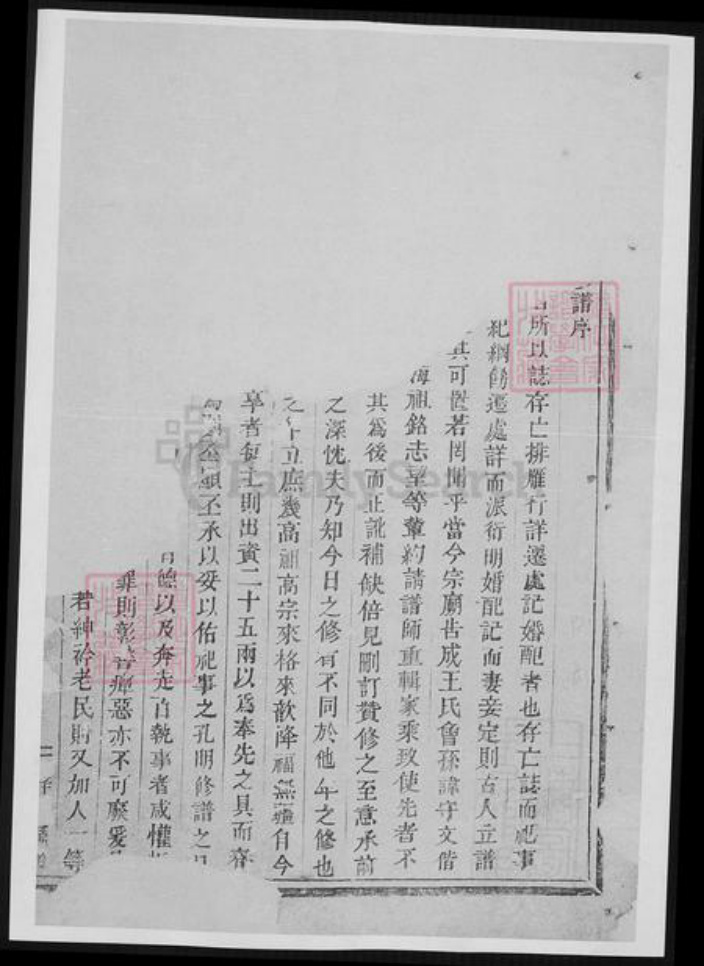 譜序
所以誌存亡排雁行詳遷處記婚配者也存亡誌而祀事
紀綱飭遷處詳而派衍明婚配記而妻妾定則古人立譜
其可置若罔聞乎當今宗廟告成王氏會孫諱守文偕
海祖銘志望等輩約請譜師重輯家乘致使先者不
其為後而止訛補缺倍見刪訂贊修之至意承前
之深忱夫乃知今日之修有不同於他年之修也
立庶幾高祖高宗來格來歆降福無疆自今
享者每主則出資二十五兩以為奉先之具而春
丕顯丕承以妥以佑祀事之孔明修譜之
德以及奔走自執事者咸懽
罪則彰善癉惡亦不可廢爰
若紳衿老民則又加人一等
FamilySearch